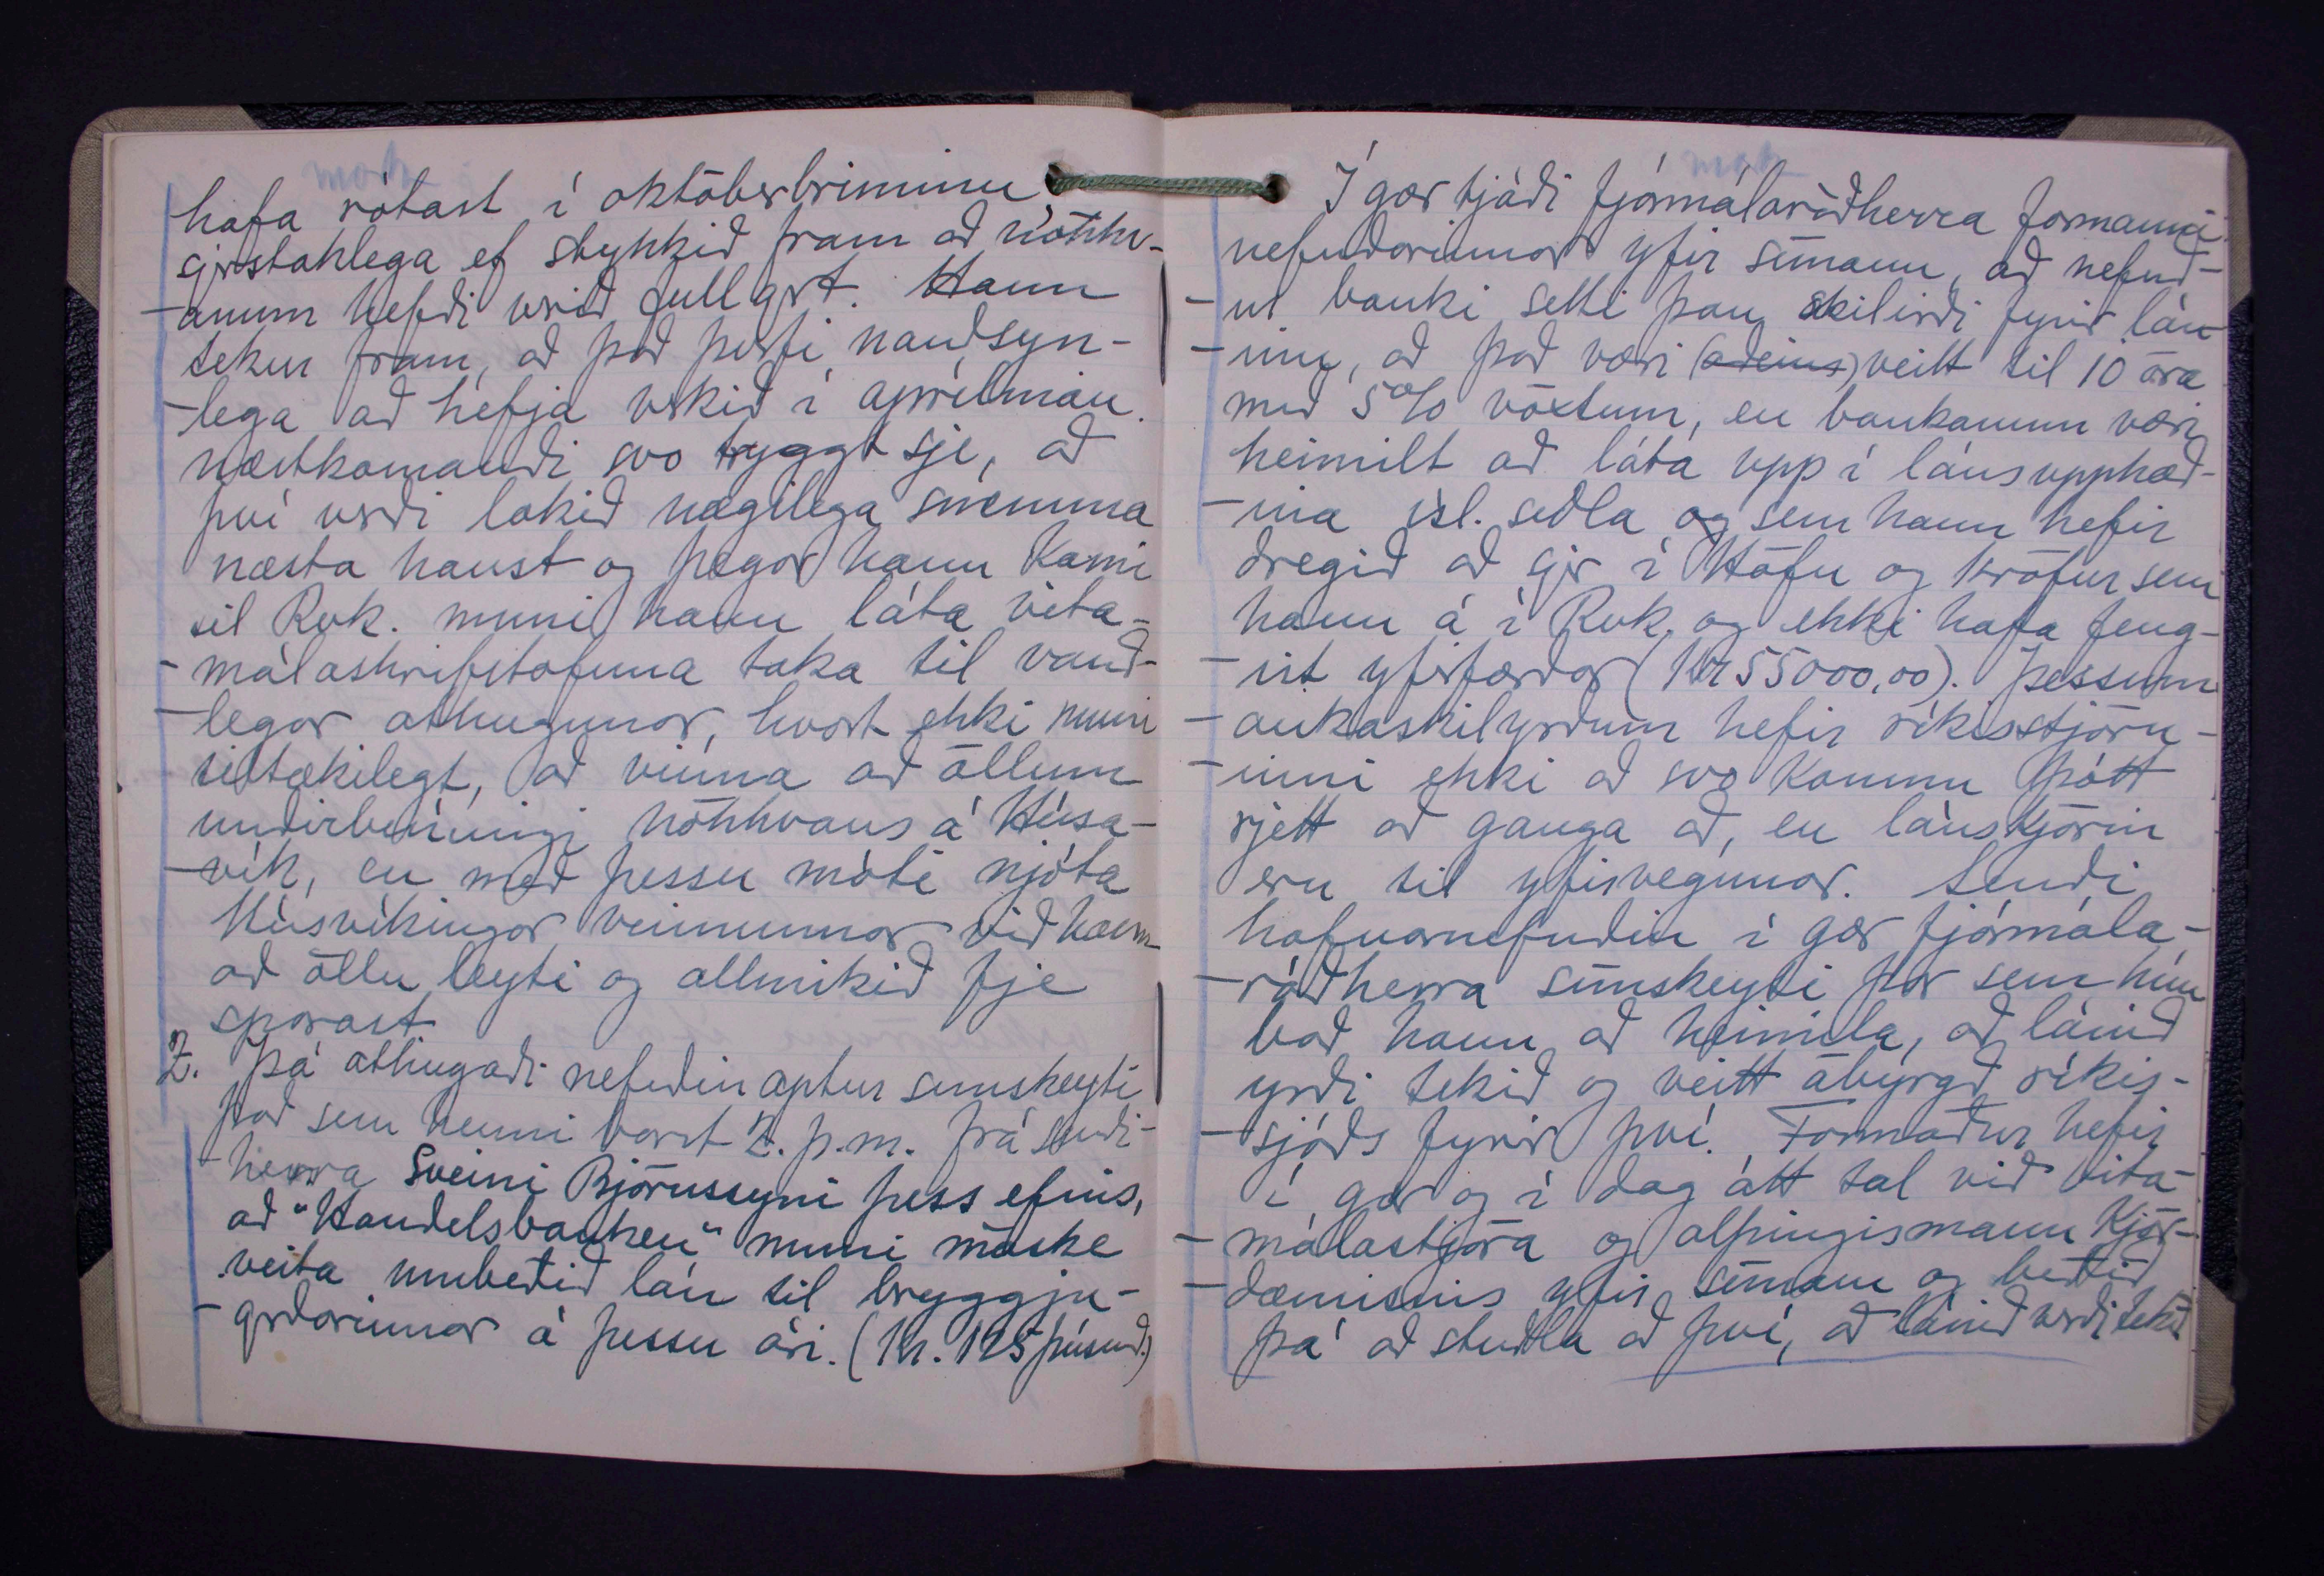 hafa rótast í októberbriminu
sjerstaklega ef stykkið fram að nökkv-
-anum hefði verið fullgert. Hann
tekur fram, að það þurfi nauðsyn-
-lega að hefja verkið í aprílmán.
næstkomandi svo tryggt sje, að
því verði lokið nægilega snemma
næsta haust og þegar hann komi
til Rvk. muni hann láta vita-
-málaskrifstofuna taka til vand-
-legar athugunar, hvort ekki muni
tiltækilegt, að vinna að öllum
undirbúningi nökkvans á Húsa-
-vík, en með þessu móti njóta
Húsvíkingar vinnunnar við hann
að öllu leyti og allmikið fje
sparast.
2. Þá athugaði nefndin aptur símskeyti
það sem henni barst 2. þ.m. frá sendi-
-herra Sveini Björnssyni þess efnis,
að "Handelsbanken" muni máske
veita umbeðið lán til bryggju-
-gerðarinnar á þessu ári. (Kr. 125 þúsund.)
Í gær tjáði fjármálaráðherra formanni
nefndarinnar yfir símann, að nefnd-
-ur banki setti þau skilirði fyrir lán
-inu, að það væri (aðeins) veitt til 10 ára
með 5% vöxtum, en bankanum væri
heimilt að láta upp í lánsupphæð-
-ina ísl. seðla og sem hann hefir
dregið að sjer í Höfn og kröfur sem
hann á í Rvk. og ekki hafa feng-
-ist yfirfærðar (Kr 55000,00). Þessum
-aukaskilyrðum hefir ríkisstjórn-
-inni ekki að svo komnu þótt
rjett að ganga að, en lánskjörin
eru til yfirvegunar. Sendi
hafnarnefndin í gær fjármála-
-ráðherra símskeyti þar sem hún
bað hann að heimila, að lánið
yrði tekið og veitt ábyrgð ríkis-
-sjóðs fyrir því. Formaður hefir
í gær og í dag átt tal við vita-
-málastjóra og alþingismann Kjör-
-dæmisins yfir símann og beðið
þá að stuðla að því, að lánið verði tekið